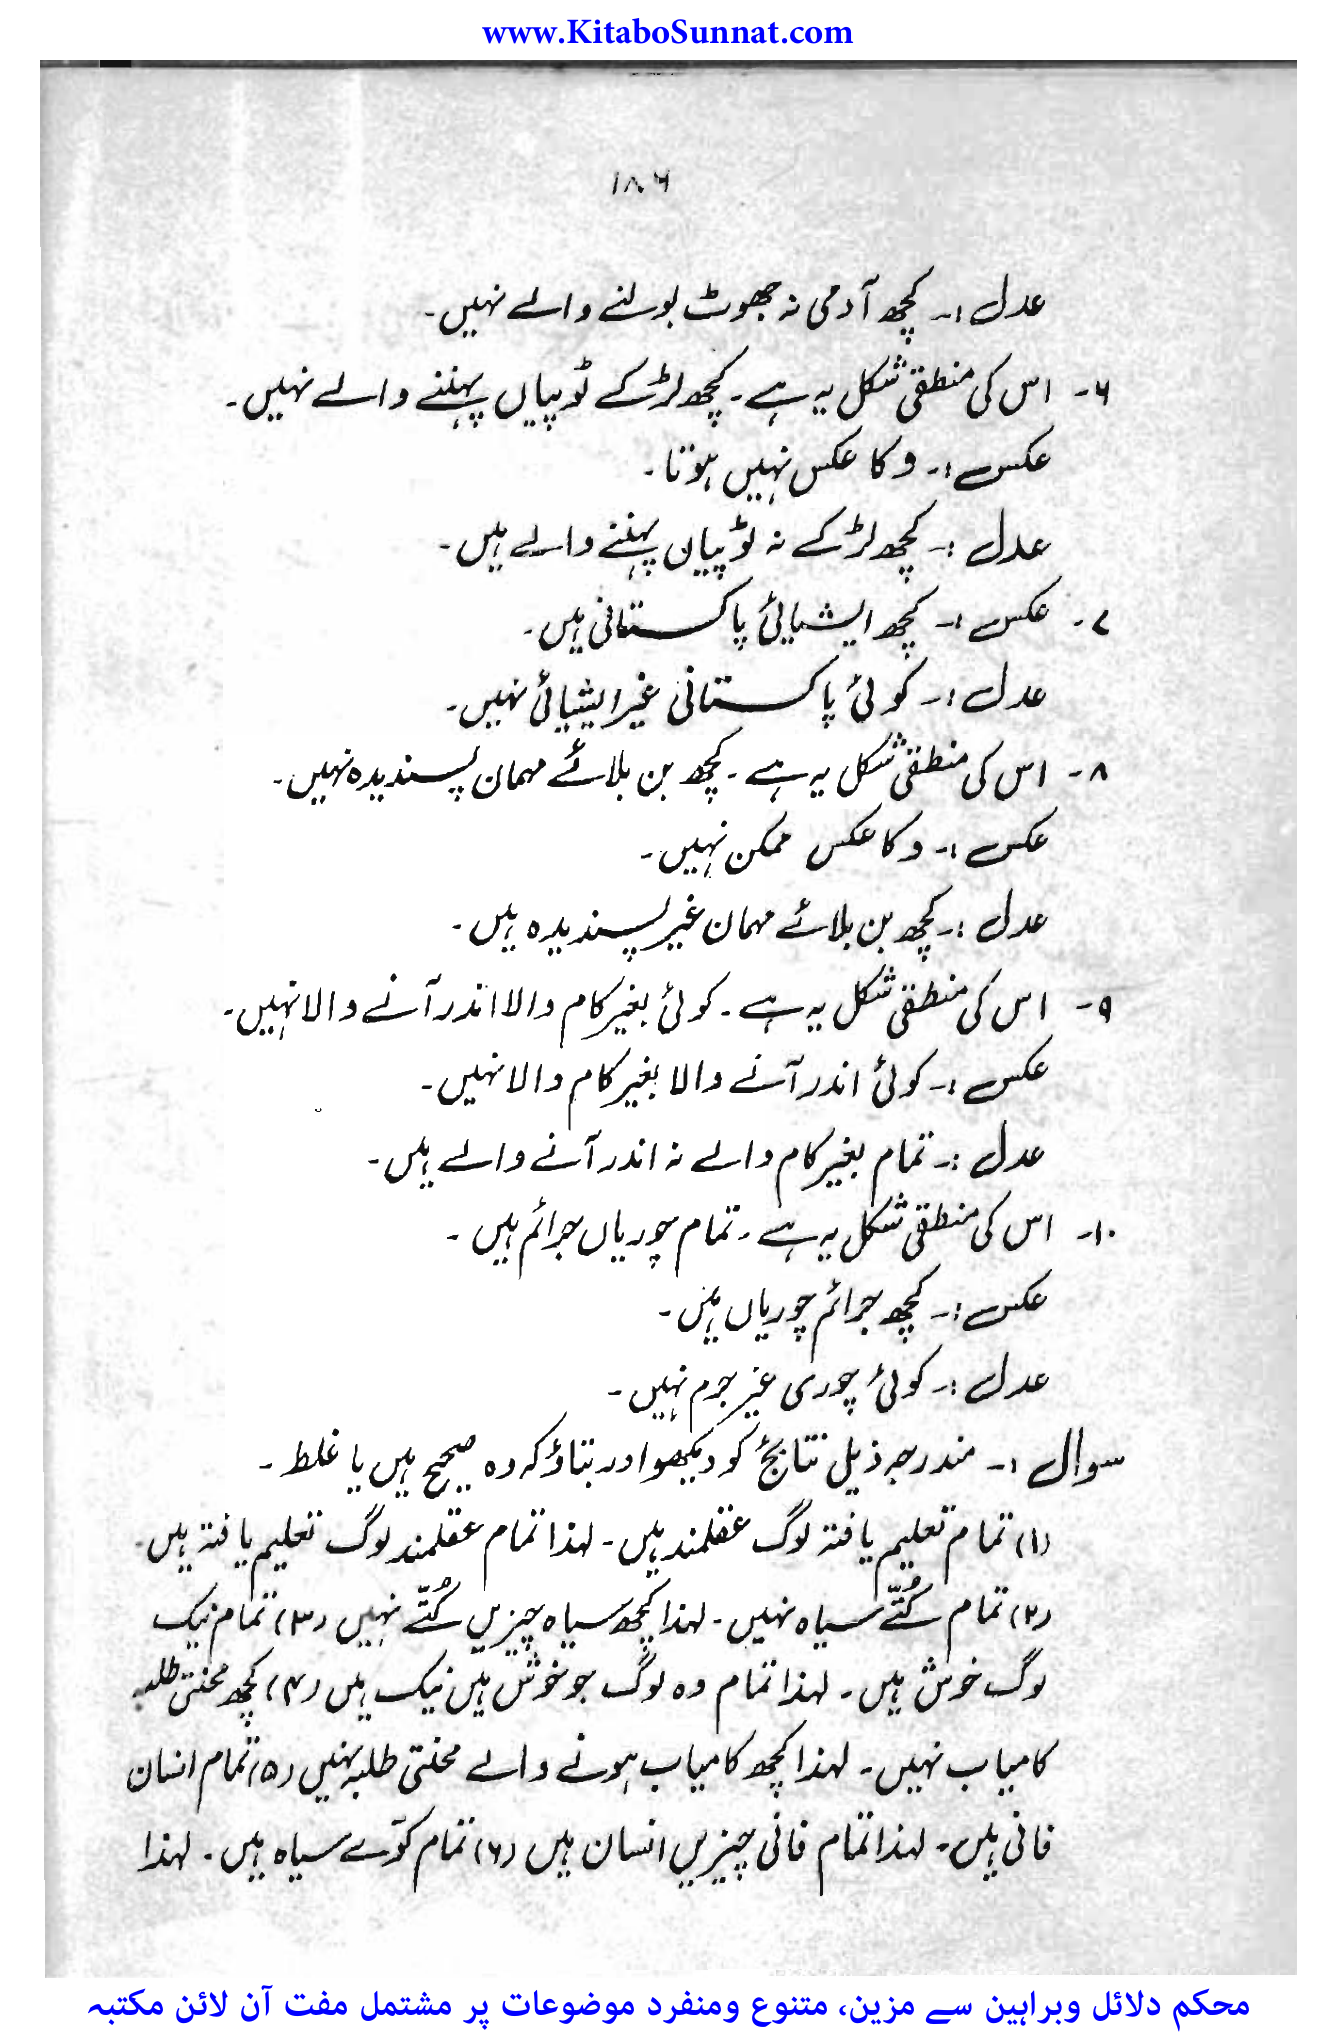 www.KitaboSunnat.com
۱۸۶
عدل :۔ کچھ آدمی نہ جھوٹ بولنے والے نہیں۔
۶۔ اس کی منطقی شکل یہ ہے۔ کچھ لڑکے ٹوپیاں پہننے والے نہیں۔
عکس :۔ و کا عکس نہیں ہوتا۔
عدل :۔ کچھ لڑکے نہ ٹوپیاں پہننے والے ہیں۔
۷۔ عکس :۔ کچھ ایشیائی پاکستانی ہیں۔
عدل :۔ کوئی پاکستانی غیر ایشیائی نہیں۔
۸۔ اس کی منطقی شکل یہ ہے۔ کچھ بن بلائے مہمان پسندیدہ نہیں۔
عکس :۔ و کا عکس ممکن نہیں۔
عدل :۔ کچھ بن بلائے مہمان غیر پسندیدہ ہیں۔
۹۔ اس کی منطقی شکل یہ ہے۔ کوئی بغیر کام والا اندر آنے والا نہیں۔
عکس :۔ کوئی اندر آنے والا بغیر کام والا نہیں۔
عدل :۔ تمام بغیر کام والے نہ اندر آنے والے ہیں۔
۱۰۔ اس کی منطقی شکل یہ ہے۔ تمام چوریاں جرائم ہیں۔
عکس :۔ کچھ جرائم چوریاں ہیں۔
عدل :۔ کوئی چوری غیر جرم نہیں۔
سوال :۔ مندرجہ ذیل نتائج کو دیکھو اور بتاؤ کہ وہ صحیح ہیں یا غلط۔
(۱) تمام تعلیم یافتہ لوگ عقلمند ہیں۔ لہذا تمام عقلمند لوگ تعلیم یافتہ ہیں۔
(۲) تمام کُتّے سیاہ نہیں۔ لہذا کچھ سیاہ چیزیں کُتّے نہیں (۳) تمام نیک
لوگ خوش ہیں۔ لہذا تمام وہ لوگ جو خوش ہیں نیک ہیں (۴) کچھ محنتی طلبہ
کامیاب نہیں۔ لہذا کچھ کامیاب ہونے والے محنتی طلبہ نہیں (۵) تمام انسان
فانی ہیں۔ لہذا تمام فانی چیزیں انسان ہیں (۶) تمام کوّے سیاہ ہیں۔ لہذا
محکم دلائل وبراہین سے مزین، متنوع ومنفرد موضوعات پر مشتمل مفت آن لائن مکتبہ